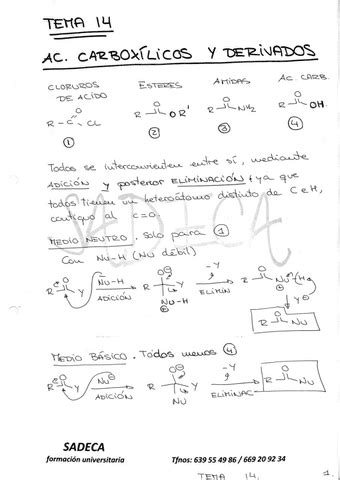 TEMA 14
AC. CARBOXÍLICOS Y DERIVADOS
CLORUROS DE ÁCIDO
ESTERES
AMIDAS
AC. CARB.
R-C Cl
O
R OR'
O
R NH2
O
R OH
O
1
2
3
4
Todos se interconvierten entre sí, mediante
ADICIÓN y posterior ELIMINACIÓN, ya que
todos tienen un heteroátomo distinto de C e H,
contiguo al C=O.
SADECA
MEDIO NEUTRO. Solo para 1
Con Nu-H (Nu débil)
R Y Nu-H ADICIÓN R Y Nu-H -Y ELIMIN R Nu H
Y⊖
R Nu
MEDIO BÁSICO. Todos menos 4
R Y Nu⊖ ADICIÓN R Y Nu -Y ELIMINAC- R Nu
SADECA
formación universitaria
Tfnos: 639 55 49 86 / 669 20 92 34
TEMA 14.
1.